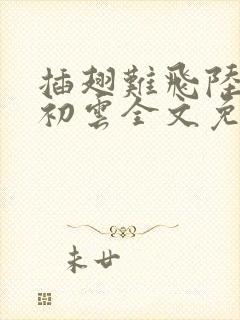 插翅難飛陸
初雲全文免
未廿